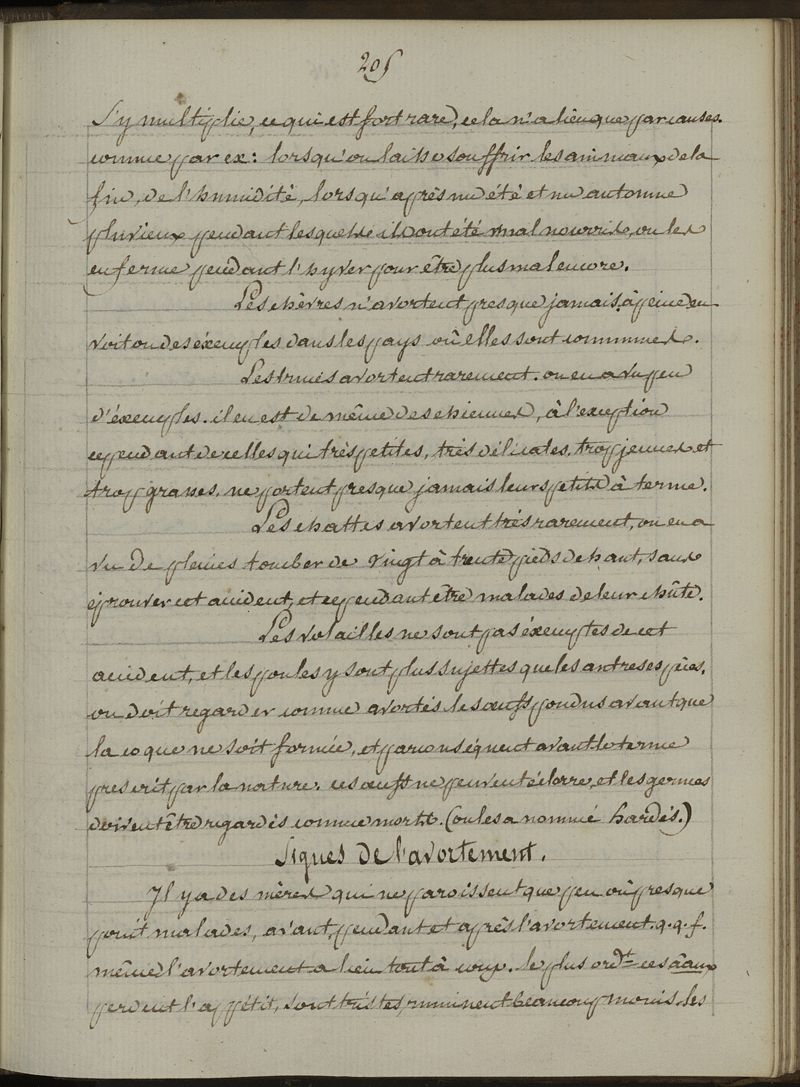 205
s'y multiplie, ce qui est fort rare, cela n'a lieu que par causes.
comme par ex: lorsqu'on laisse souffrir les animaux de la
fin, de l'humidité, lorsqu'après un été et un automne
pluvieux pendant lesquels ils ont été mal nourris, on les
enferme pendant l'hyver pour être plus mal encore.
Les chèvres n'avortent presque jamais, à peine en
voit on des éxemples dans les pays où elles sont communes.
Les truies avortent rarement. on en a vu peu
d'éxemples. il en est de même des chiennes, à l'exception
cependant de celles qui très petites, très délicates, trop jeunes et
trop grasses, ne portent presque jamais leurs petits à terme.
Les chattes avortent très rarement, on en a
vu de pleines tomber de vingt à trente pieds de haut, sans
éprouver cet accident, et cependant être malades de leur chûte.
Les volailles ne sont pas éxemptes de cet
accident, et les poules y sont plus sujettes que les autres espèces.
on doit regarder comme avortés les œufs pondus avant que
la coque ne soit formée, et par conséquent avant le terme
prescrit par la nature. ces œufs ne peuvent éclorre, et les germes
doivent être regardés comme morts. (on les a nommé hardés.)
Signes de l'avortement.
Il y a des mères qui ne paroissent que peu où presque
point malades, avant, pendant et après l'avortement. q.q.f.
même l'avortement a lieu tout à coup. le plus ordt ces ãaux
perdent l'appétit, sont tristes, ruminent beaucoup moins. les